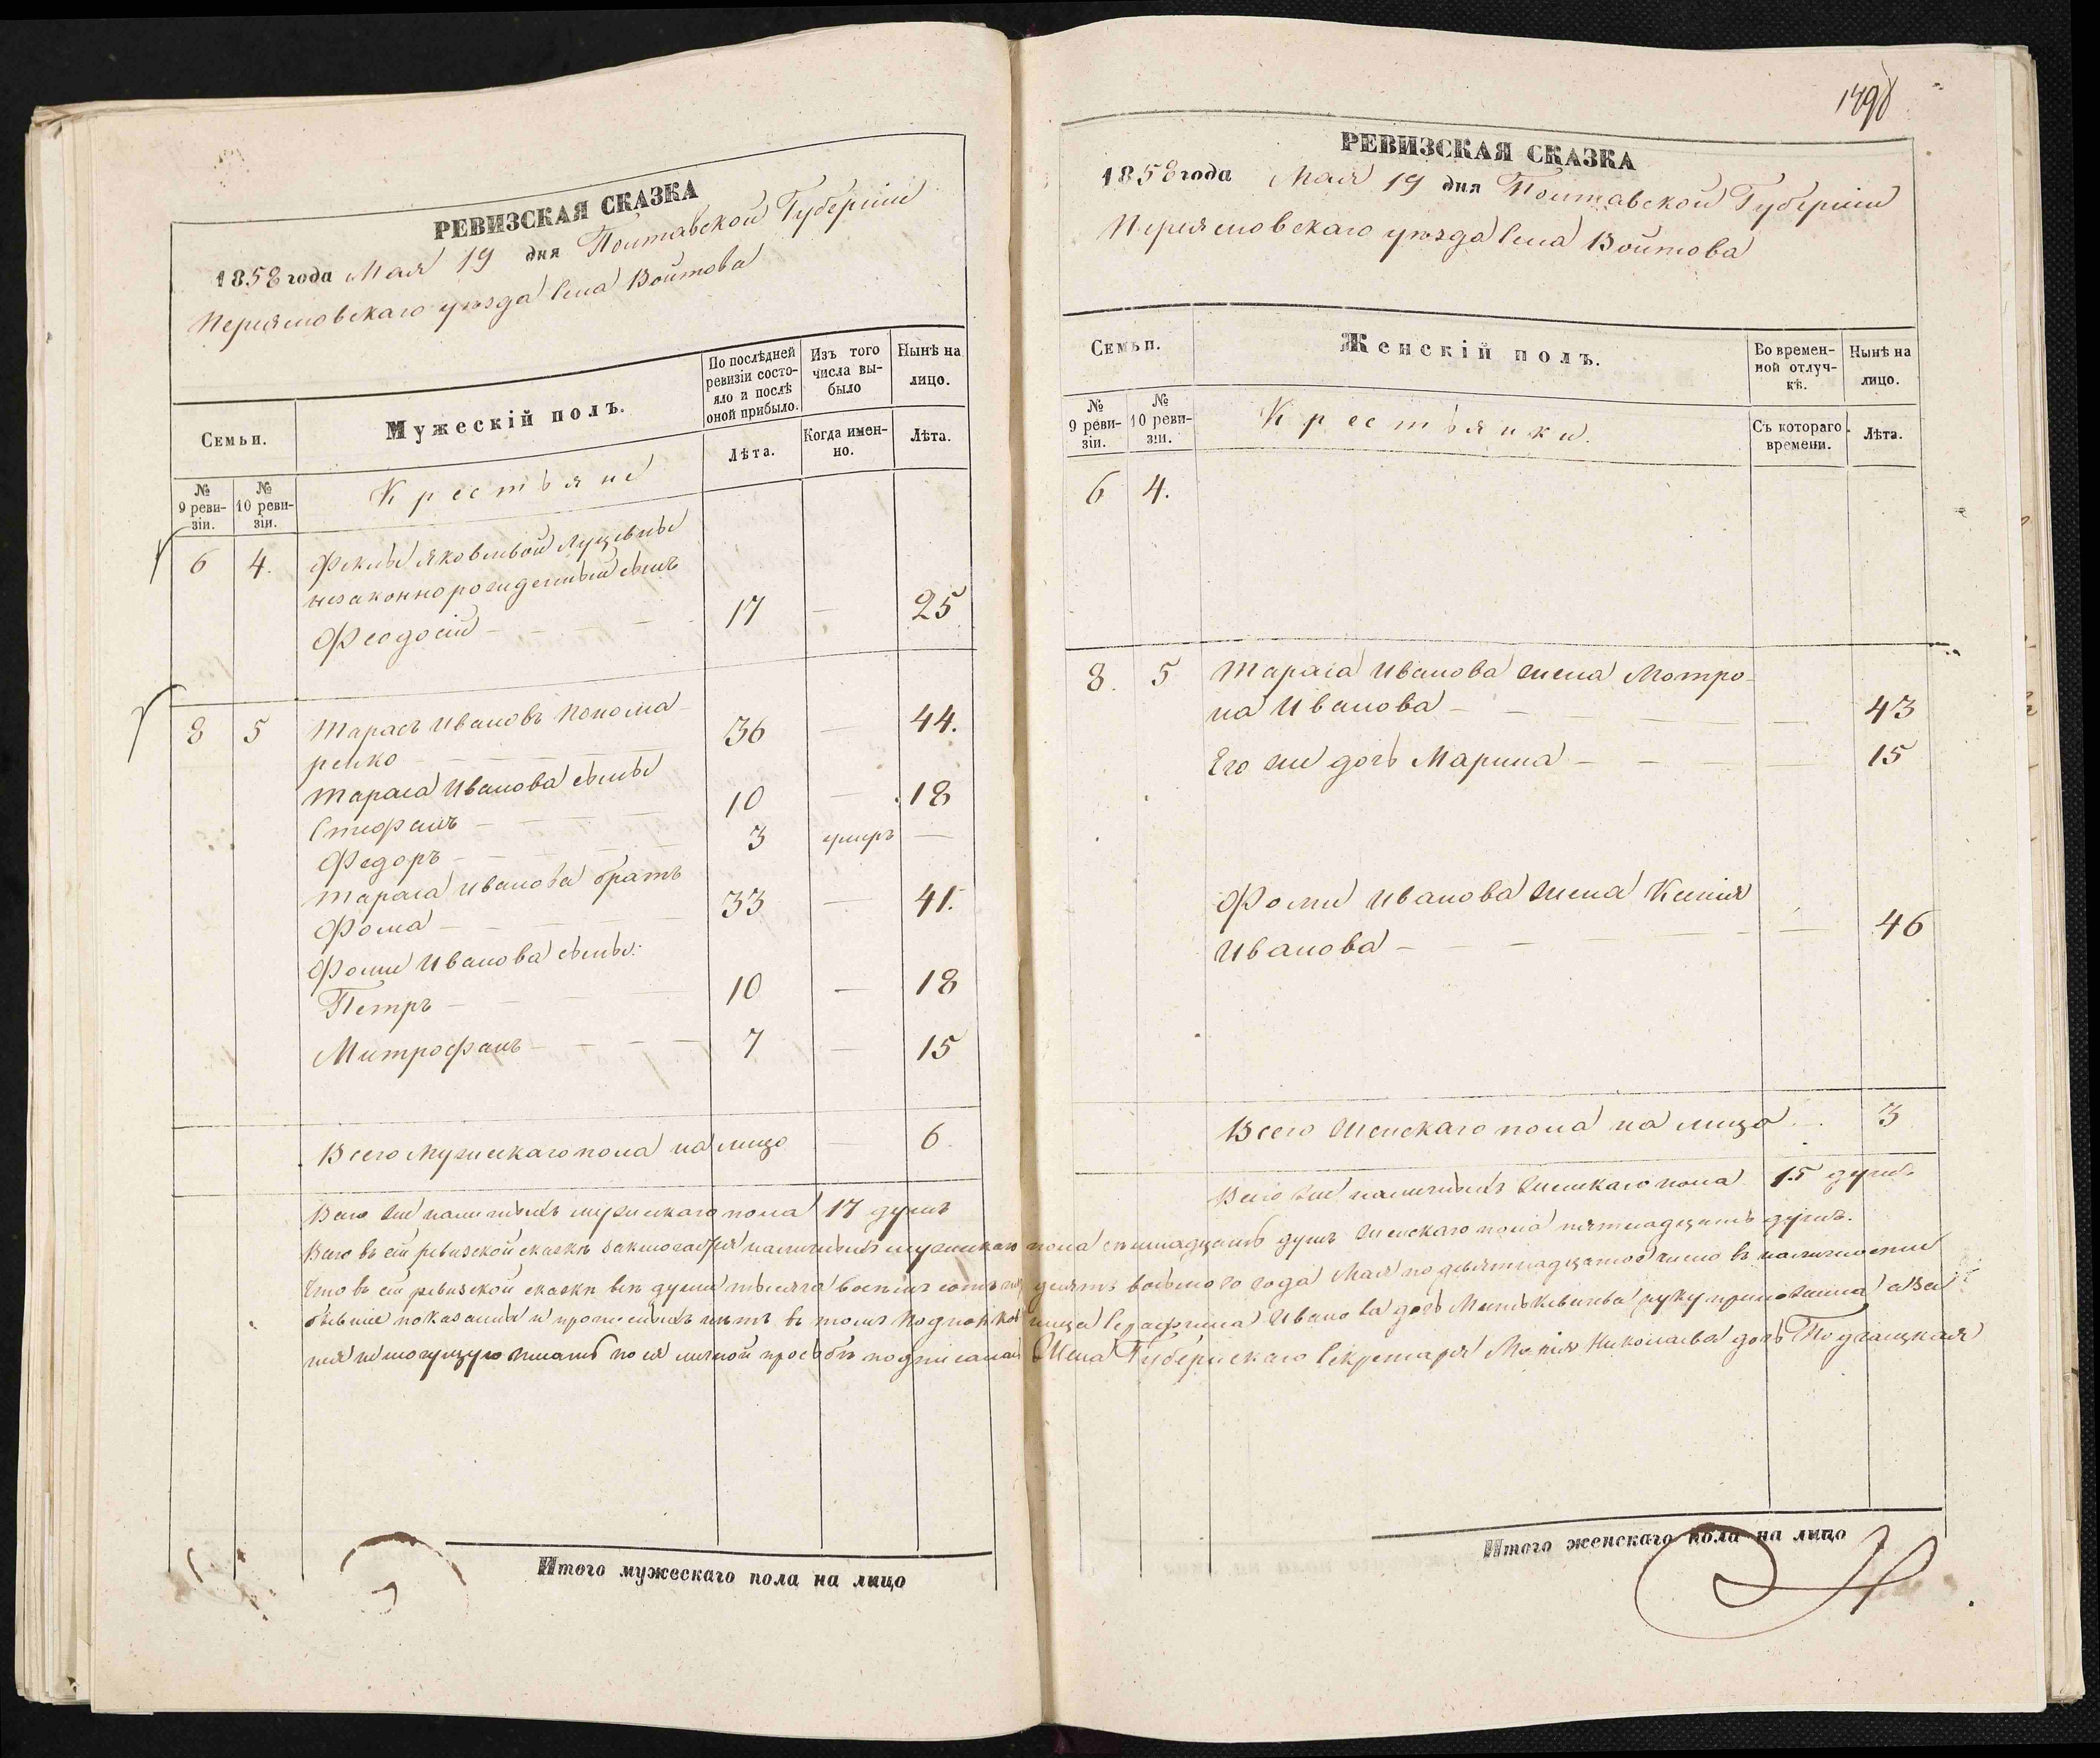 РЕВИЗСКАЯ СКАЗКА
1858 года Мая 19 дня Полтавской Губерніи
Переяславскаго уѣзда Села Войтова
Семьи.
Мужескій полъ.
По послѣдней ревизіи состояло и послѣ оной прибыло.
Изъ того числа выбыло
Нынѣ на лицо.
№ 9 ревизіи.
№ 10 ревизіи.
Крестьяне
Лѣта.
Когда именно.
Лѣта.
6 4. Феклы Яковлевой Луцевны
незаконнорожденный сынъ
Феодосій — 17 — 25
8 5 Тарасъ Ивановъ Понома-
ренко 36 — 44.
Тараса Иванова сыны
Стефанъ — 10 — 18
Федоръ — 3 умеръ —
Тараса Иванова братъ
Фома — 33 — 41.
Фомы Иванова сыны:
Петръ — 10 — 18
Митрофанъ — 7 — 15
Всего Мужескаго пола на лицо — 6
Всего же наличныхъ мужескаго пола 17 душъ
1498
РЕВИЗСКАЯ СКАЗКА
1858 года Мая 19 дня Полтавской Губерніи
Переясловскаго уѣзда Села Войтова
Семьи.
Женскій полъ.
Во временной отлучкѣ.
Нынѣ на лицо.
№ 9 ревизіи.
№ 10 ревизіи.
Крестьянки.
Съ котораго времени.
Лѣта.
6 4.
8. 5 Тараса Иванова жена Мотро-
на Иванова — — 43
Его же дочь Марина — — 15
Фомы Иванова жена Ксенія
Иванова — — 46
Всего Женскаго пола на лицо . . 3
Всего же наличныхъ женскаго пола 15 душъ
Всего въ сей ревизской сказкѣ заключается наличныхъ мужескаго пола семнадцать душъ женскаго пола пятнадцать душъ.
Что въ сей ревизской сказкѣ всѣ души тысяча восемь сотъ пятдесятъ восьмого года Мая по девятнадцатое число въ наличности
бывшие показаны и прописныхъ нѣтъ въ томъ Иванова дочь руку приложила а за
нея немогущую писать по ея личной просьбѣ подписалась Жена Губернскаго Секретаря Марія Николаева дочь
Итого мужескаго пола на лицо
Итого женскаго пола на лицо